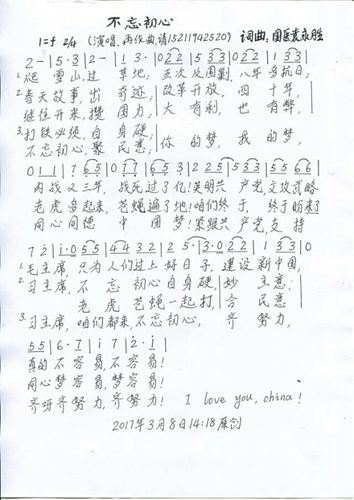 不忘初心
1=f 2/4 (演唱、再作曲,请15211942520) 词曲:国医袁永胜
2-|5·3|2-|022|533|022|533|022|
1.爬雪山,过草地,五次反围剿,八年多抗日,
2.春天故事,出奇迹,改革开放,四十年,
继往开来,攒国力,大有利,也有弊,
3.打铁必须,自身硬,你的梦,我的梦,
不忘初心,聚民意;
011|765|077|653|225|533|5566|
内战又三年,战死过了亿!美明兴产党文攻武略
老虎多起来,苍蝇遍了地!咱们终于,终于盼来了
同心同德中国梦!紧跟共产党支持
72|i·055|4432|25·|3·022|133|0
1.毛主席,只为人们过上好日子,建设新中国,
2.习主席,不忘初心自身硬,妙主意;
老虎苍蝇一起打,合民意
3.习主席,咱们都来,不忘初心,齐努力,
55|6·7|i7|2·i|
真的不容易,不容易!
同心梦容易,梦容易!
齐呀齐努力,齐努力! I love you, china!
2017年3月8日14:18原创